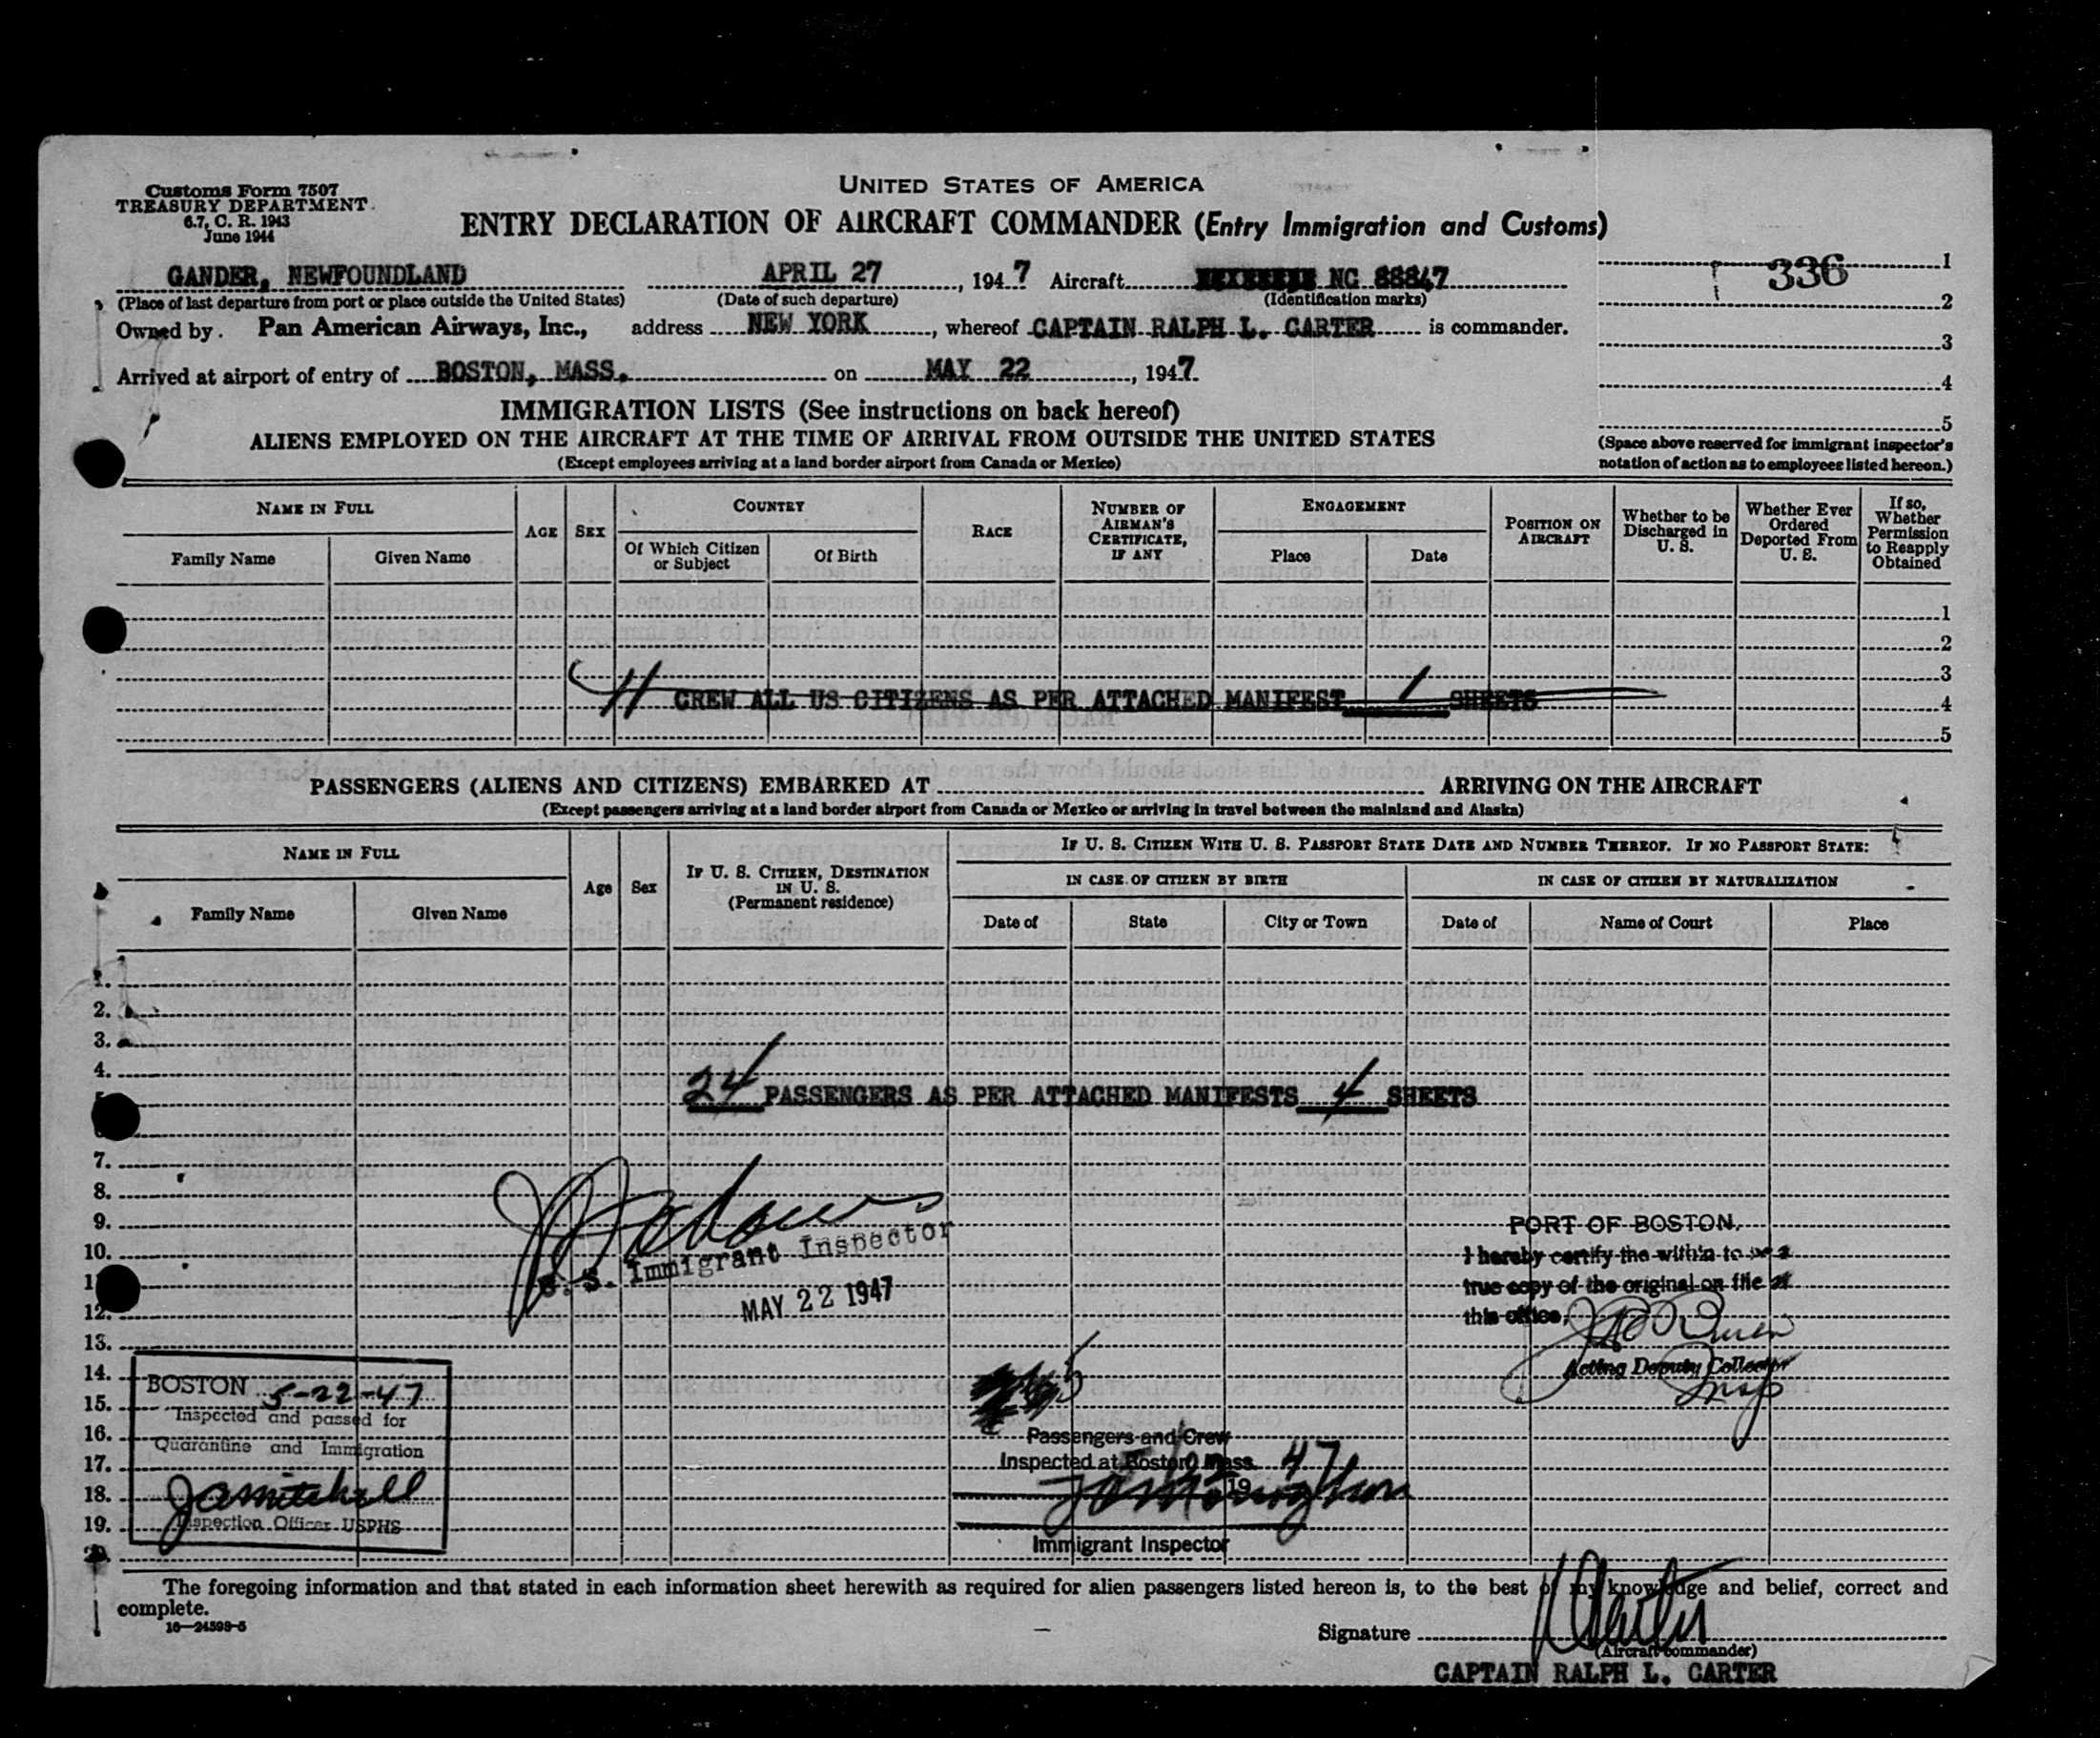 Customs Form 7507
TREASURY DEPARTMENT
6.7, C. R. 1943
June 1944
UNITED STATES OF AMERICA
ENTRY DECLARATION OF AIRCRAFT COMMANDER (Entry Immigration and Customs)
GANDER, NEWFOUNDLAND APRIL 27, 1947 Aircraft NC 88847
(Place of last departure from port or place outside the United States) (Date of such departure) (Identification marks)
Owned by Pan American Airways, Inc., address NEW YORK, whereof CAPTAIN RALPH L. CARTER is commander.
Arrived at airport of entry of BOSTON, MASS. on MAY 22, 1947
336
1
2
3
4
5
(Space above reserved for immigrant inspector's
notation of action as to employees listed hereon.)
IMMIGRATION LISTS (See instructions on back hereof)
ALIENS EMPLOYED ON THE AIRCRAFT AT THE TIME OF ARRIVAL FROM OUTSIDE THE UNITED STATES
(Except employees arriving at a land border airport from Canada or Mexico)
NAME IN FULL
Family Name
Given Name
AGE
SEX
COUNTRY
Of Which Citizen
or Subject
Of Birth
RACE
NUMBER OF
AIRMAN'S
CERTIFICATE,
IF ANY
ENGAGEMENT
Place
Date
POSITION ON
AIRCRAFT
Whether to be
Discharged in
U. S.
Whether Ever
Ordered
Deported From
U. S.
If so,
Whether
Permission
to Reapply
Obtained
1
2
3
11 CREW ALL US CITIZENS AS PER ATTACHED MANIFEST 1 SHEETS
4
5
PASSENGERS (ALIENS AND CITIZENS) EMBARKED AT ARRIVING ON THE AIRCRAFT
(Except passengers arriving at a land border airport from Canada or Mexico or arriving in travel between the mainland and Alaska)
NAME IN FULL
Family Name
Given Name
Age
Sex
IF U. S. CITIZEN, DESTINATION
IN U. S.
(Permanent residence)
IF U. S. CITIZEN WITH U. S. PASSPORT STATE DATE AND NUMBER THEREOF. IF NO PASSPORT STATE:
IN CASE OF CITIZEN BY BIRTH
Date of
State
City or Town
IN CASE OF CITIZEN BY NATURALIZATION
Date of
Name of Court
Place
1.
2.
3.
4.
24 PASSENGERS AS PER ATTACHED MANIFESTS 4 SHEETS
7.
8.
9.
10.
12.
13.
14.
15.
16.
17.
18.
19.
U. S. Immigrant Inspector
MAY 22 1947
PORT OF BOSTON.
I hereby certify the within to be a
true copy of the original on file at
this office.
Acting Deputy Collector
Insp
BOSTON 5-22-47
Inspected and passed for
Quarantine and Immigration
J A Mitchell
Inspection Officer USPHS
Passengers and Crew
Inspected at Boston, Mass.
47
19
Immigrant Inspector
The foregoing information and that stated in each information sheet herewith as required for alien passengers listed hereon is, to the best of my knowledge and belief, correct and
complete.
16—24598-5
Signature R L Carter
(Aircraft commander)
CAPTAIN RALPH L. CARTER